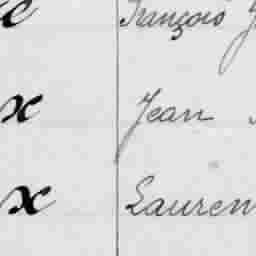 François
x Jean
x Lauren